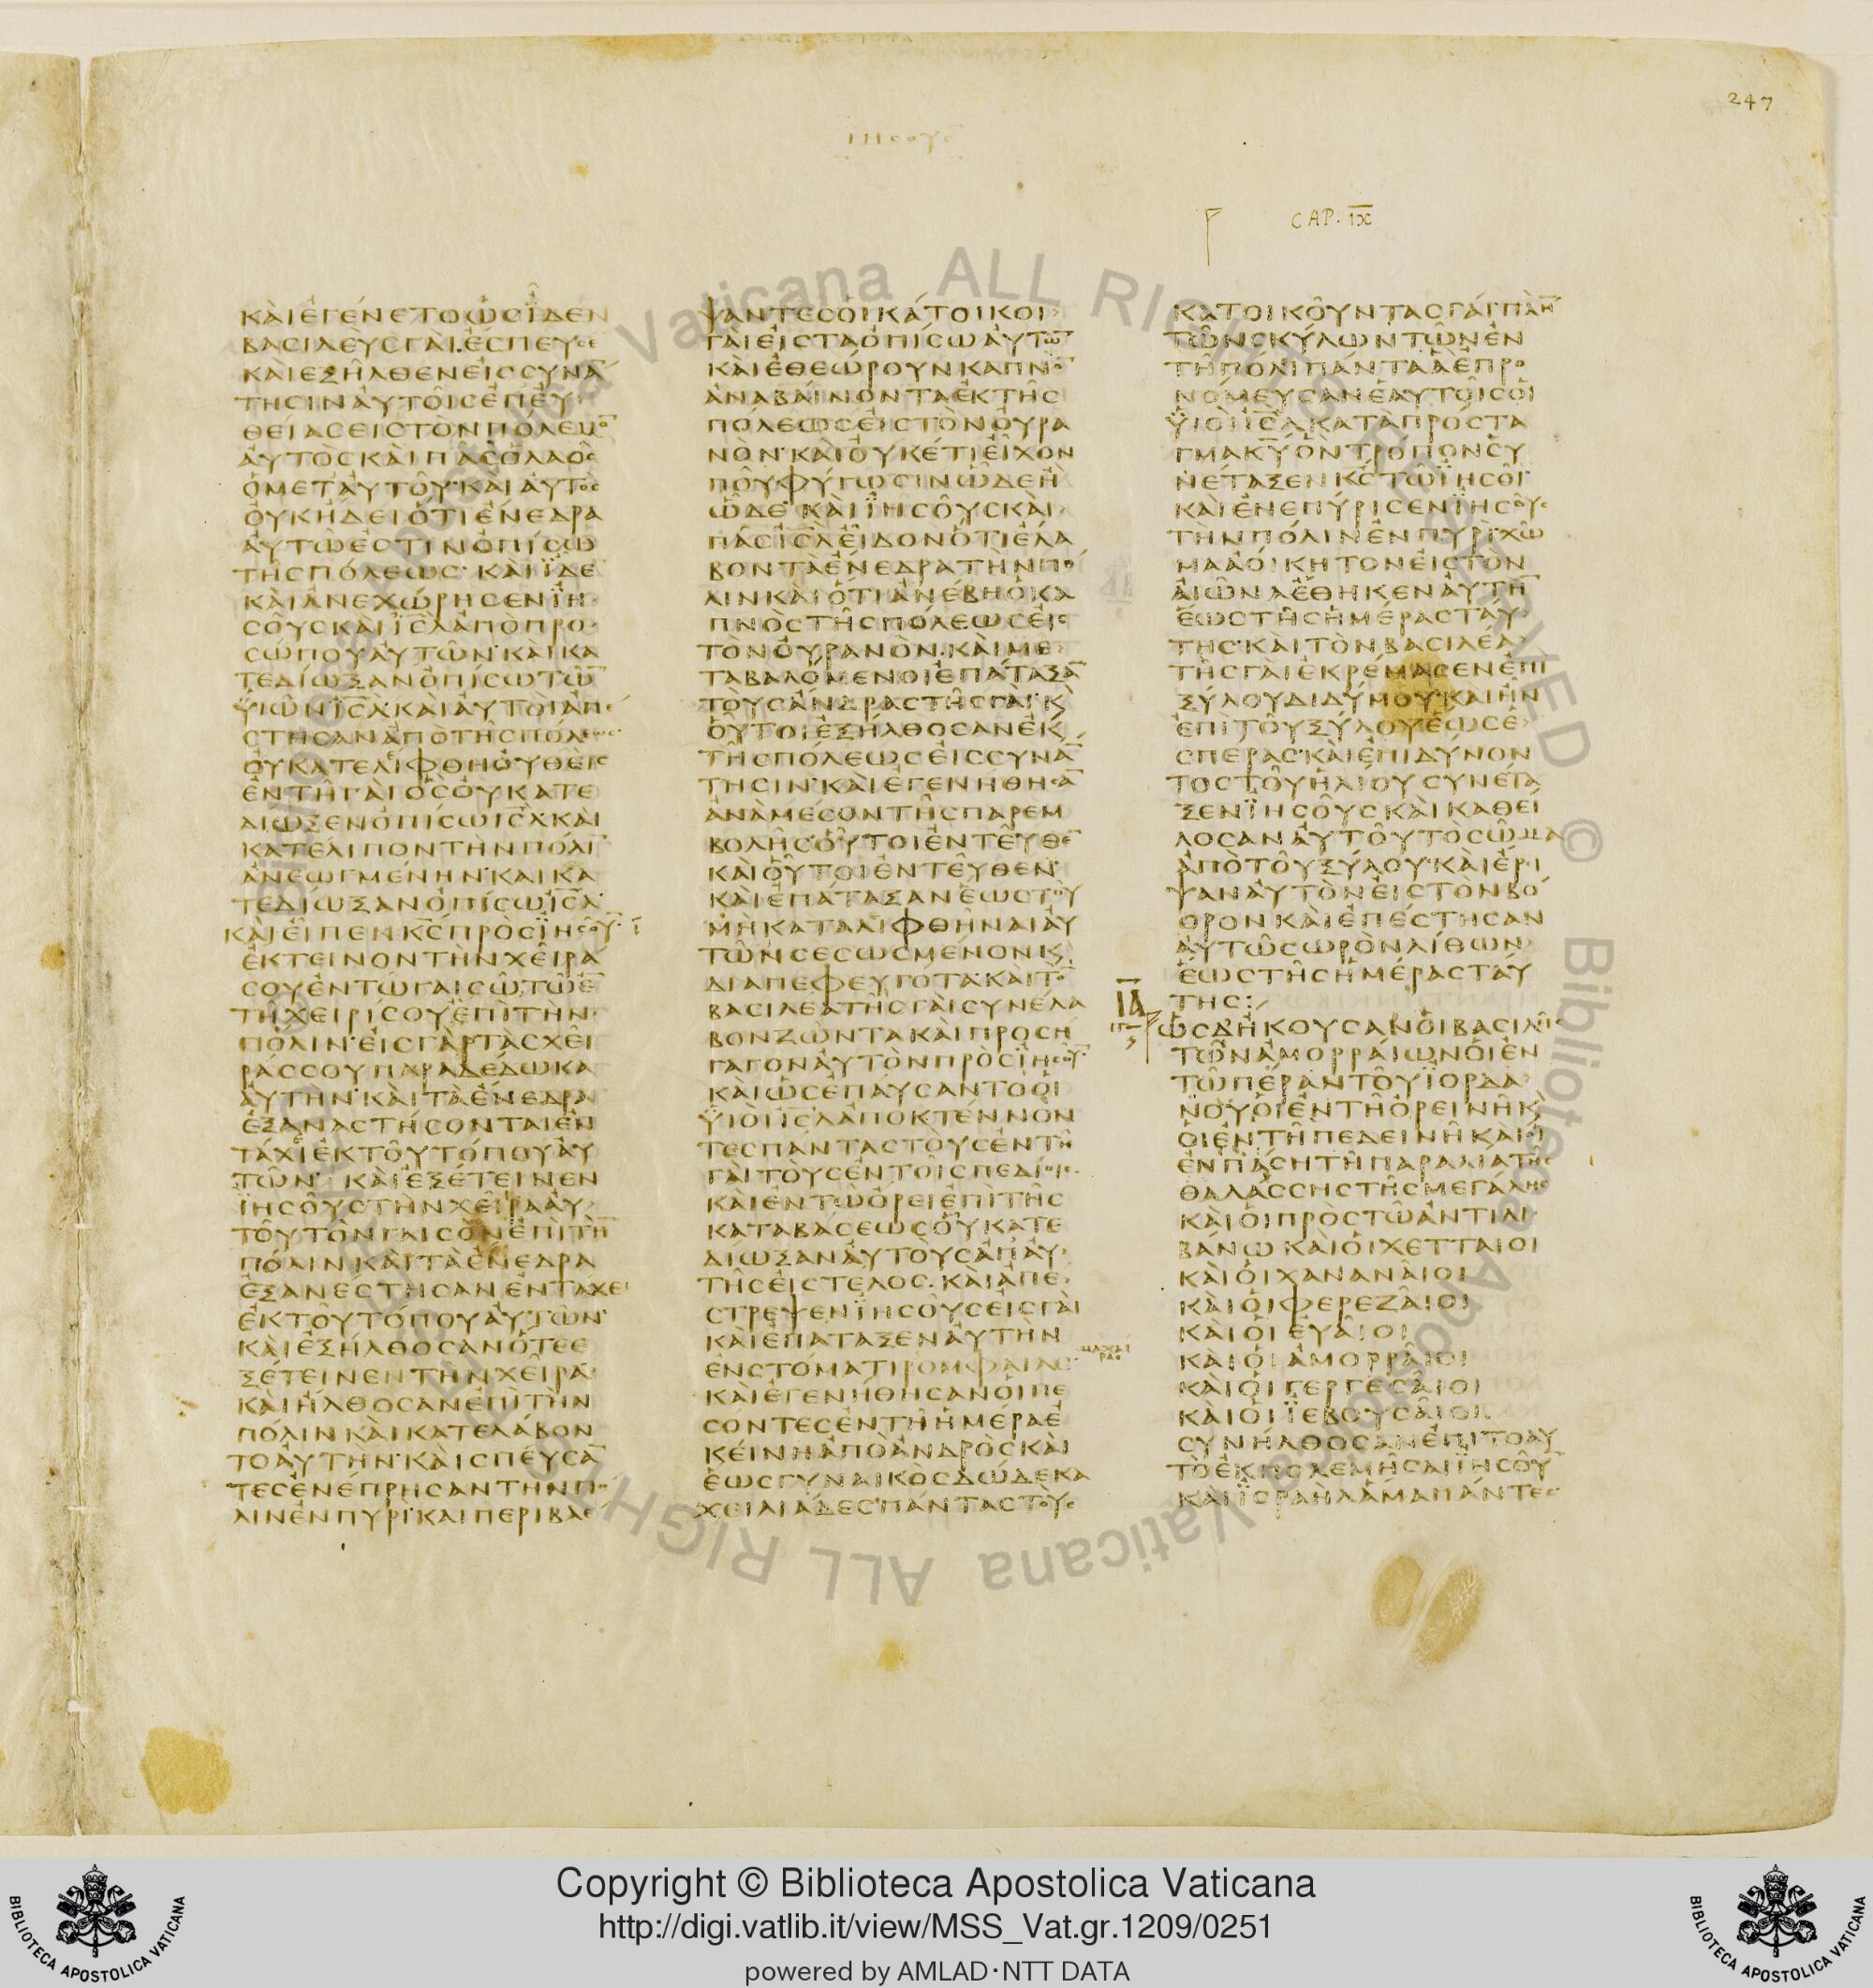 247
ΙΗϹΟΥϹ
CAP. IX
ΚΑΙΕΓΕΝΕΤΟΩϹΙΔΕΝ
ΒΑϹΙΛΕΥϹΓΑΙΕϹΠΕΥϹΕ
ΚΑΙΕΞΗΛΘΕΝΕΙϹϹΥΝΑ̅
ΤΗϹΙΝΑΥΤΟΙϹΕΠΕΥ
ΘΕΙΑϹΕΙϹΤΟΝΠΟΛΕΜΟ̅
ΑΥΤΟϹΚΑΙΠΑϹΟΛΑΟϹ
ΟΜΕΤΑΥΤΟΥΚΑΙΑΥΤΟϹ
ΟΥΚΗΔΕΙΟΤΙΕΝΕΔΡΑ
ΑΥΤΩΕϹΤΙΝΟΠΙϹΩ
ΤΗϹΠΟΛΕΩϹ ΚΑΙΪΔΕ
ΚΑΙΑΝΕΧΩΡΗϹΕΝΪΗ
ϹΟΥϹΚΑΙΙ̅Ϲ̅Λ̅ΑΠΟΠΡΟ
ϹΩΠΟΥΑΥΤΩΝΚΑΙΚΑ
ΤΕΔΙΩΞΑΝΟΠΙϹΩΤΩ̅
ΫΙΩΝΙ̅Ϲ̅Λ̅ΚΑΙΑΥΤΟΙΑΠΕ
ϹΤΗϹΑΝΑΠΟΤΗϹΠΟΛΕΩϹ
ΟΥΚΑΤΕΛΙΦΘΗΟΥΘΕΙϹ
ΕΝΤΗΓΑΙΟϹΟΥΚΑΤΕ
ΔΙΩΞΕΝΟΠΙϹΩΙ̅Ϲ̅Λ̅ΚΑΙ
ΚΑΤΕΛΙΠΟΝΤΗΝΠΟΛΙ̅
ΑΝΕΩΓΜΕΝΗΝΚΑΙΚΑ
ΤΕΔΙΩΞΑΝΟΠΙϹΩΙ̅Ϲ̅Λ̅
ΚΑΙΕΙΠΕΝΚ̅Ϲ̅ΠΡΟϹΪΗϹΟΥ̅
ΕΚΤΕΙΝΟΝΤΗΝΧΕΙΡΑ
ϹΟΥΕΝΤΩΓΑΙϹΩΤΩΕ̅
ΤΗΧΕΙΡΙϹΟΥΕΠΙΤΗΝ
ΠΟΛΙΝΕΙϹΓΑΡΤΑϹΧΕΙ
ΡΑϹϹΟΥΠΑΡΑΔΕΔΩΚΑ
ΑΥΤΗΝΚΑΙΤΑΕΝΕΔΡΑ
ΕΞΑΝΑϹΤΗϹΟΝΤΑΙΕΝ
ΤΑΧΙΕΚΤΟΥΤΟΠΟΥΑΥ
ΤΩΝ ΚΑΙΕΞΕΤΕΙΝΕΝ
ΪΗϹΟΥϹΤΗΝΧΕΙΡΑΑΥ
ΤΟΥΤΟΝΓΑΙϹΟΝΕΠΙΤΗ̅
ΠΟΛΙΝΚΑΙΤΑΕΝΕΔΡΑ
ΕΞΑΝΕϹΤΗϹΑΝΕΝΤΑΧΕΙ
ΕΚΤΟΥΤΟΠΟΥΑΥΤΩΝ
ΚΑΙΕΞΗΛΘΟϹΑΝΟΤΕΕ
ΞΕΤΕΙΝΕΝΤΗΝΧΕΙΡΑ
ΚΑΙΗΛΘΟϹΑΝΕΠΙΤΗΝ
ΠΟΛΙΝΚΑΙΚΑΤΕΛΑΒΟΝ
ΤΟΑΥΤΗΝΚΑΙϹΠΕΥϹΑ̅
ΤΕϹΕΝΕΠΡΗϹΑΝΤΗΝΠΟ
ΛΙΝΕΝΠΥΡΙΚΑΙΠΕΡΙΒΛΕ
ΨΑΝΤΕϹΟΙΚΑΤΟΙΚΟΙ
ΓΑΙΕΙϹΤΑΟΠΙϹΩΑΥΤΩ̅
ΚΑΙΕΘΕΩΡΟΥΝΚΑΠΝΟ̅
ΑΝΑΒΑΙΝΟΝΤΑΕΚΤΗϹ
ΠΟΛΕΩϹΕΙϹΤΟΝΟΥΡΑ
ΝΟΝΚΑΙΟΥΚΕΤΙΕΙΧΟΝ
ΠΟΥΦΥΓΩϹΙΝΩΔΕΗ
ΩΔΕ ΚΑΙΪΗϹΟΥϹΚΑΙ
ΠΑϹΙ̅Ϲ̅Λ̅ΕΙΔΟΝΟΤΙΕΛΑ
ΒΟΝΤΑΕΝΕΔΡΑΤΗΝΠΟ
ΛΙΝΚΑΙΟΤΙΑΝΕΒΗΟΚΑ
ΠΝΟϹΤΗϹΠΟΛΕΩϹΕΙϹ
ΤΟΝΟΥΡΑΝΟΝ ΚΑΙΜΕ
ΤΑΒΑΛΟΜΕΝΟΙΕΠΑΤΑΞΑ̅
ΤΟΥϹΑΝΔΡΑϹΤΗϹΓΑΙΚ
ΟΥΤΟΙΕΞΗΛΘΟϹΑΝΕΚ
ΤΗϹΠΟΛΕΩϹΕΙϹϹΥΝΑ̅
ΤΗϹΙΝΚΑΙΕΓΕΝΗΘΗϹΑ̅
ΑΝΑΜΕϹΟΝΤΗϹΠΑΡΕΜ
ΒΟΛΗϹΟΥΤΟΙΕΝΤΕΥΘΕ̅
ΚΑΙΟΥΤΟΙΕΝΤΕΥΘΕΝ
ΚΑΙΕΠΑΤΑΞΑΝΕΩϹΤΟΥ
ΜΗΚΑΤΑΛΙΦΘΗΝΑΙΑΥ
ΤΩΝϹΕϹΩϹΜΕΝΟΝΚ
ΔΙΑΠΕΦΕΥΓΟΤΑΚΑΙΤΟ̅
ΒΑϹΙΛΕΑΤΗϹΓΑΙϹΥΝΕΛΑ
ΒΟΝΖΩΝΤΑΚΑΙΠΡΟϹΗ
ΓΑΓΟΝΑΥΤΟΝΠΡΟϹΪΗϹΟΥ̅
ΚΑΙΩϹΕΠΑΥϹΑΝΤΟΟΙ
ΫΙΟΙΙ̅Ϲ̅Λ̅ΑΠΟΚΤΕΝΝΟΝ
ΤΕϹΠΑΝΤΑϹΤΟΥϹΕΝΤΗ
ΓΑΙΤΟΥϹΕΝΤΟΙϹΠΕΔΙΟΙϹ
ΚΑΙΕΝΤΩΟΡΕΙΕΠΙΤΗϹ
ΚΑΤΑΒΑϹΕΩϹΟΥΚΑΤΕ
ΔΙΩΞΑΝΑΥΤΟΥϹΑΠΑΥ
ΤΗϹΕΙϹΤΕΛΟϹ ΚΑΙΑΠΕ
ϹΤΡΕΨΕΝΪΗϹΟΥϹΕΙϹΓΑΙ
ΚΑΙΕΠΑΤΑΞΕΝΑΥΤΗΝ
ΕΝϹΤΟΜΑΤΙΡΟΜΦΑΙΑϹ
ΜΑΧΑΙ
ΡΑϹ
ΚΑΙΕΓΕΝΗΘΗϹΑΝΟΙΠΕ
ϹΟΝΤΕϹΕΝΤΗΗΜΕΡΑΕ
ΚΕΙΝΗΑΠΟΑΝΔΡΟϹΚΑΙ
ΕΩϹΓΥΝΑΙΚΟϹΔΩΔΕΚΑ
ΧΕΙΛΙΑΔΕϹΠΑΝΤΑϹΤΟΥϹ
ΚΑΤΟΙΚΟΥΝΤΑϹΓΑΙΠΛΗ̅
ΤΩΝϹΚΥΛΩΝΤΩΝΕΝ
ΤΗΠΟΛΙΠΑΝΤΑΑΕΠΡΟ
ΝΟΜΕΥϹΑΝΕΑΥΤΟΙϹΟΙ
ΫΙΟΙΙ̅Ϲ̅Λ̅ΚΑΤΑΠΡΟϹΤΑ
ΓΜΑΚ̅Υ̅ΟΝΤΡΟΠΟΝϹΥ
ΝΕΤΑΞΕΝΚ̅Ϲ̅ΤΩΪΗϹΟΙ
ΚΑΙΕΝΕΠΥΡΙϹΕΝΪΗϹΟΥϹ
ΤΗΝΠΟΛΙΝΕΝΠΥΡΙΧΩ
ΜΑΑΟΙΚΗΤΟΝΕΙϹΤΟΝ
ΑΙΩΝΑΕΘΗΚΕΝΑΥΤΗ̅
ΕΩϹΤΗϹΗΜΕΡΑϹΤΑΥ
ΤΗϹΚΑΙΤΟΝΒΑϹΙΛΕΑ
ΤΗϹΓΑΙΕΚΡΕΜΑϹΕΝΕΠΙ
ΞΥΛΟΥΔΙΔΥΜΟΥΚΑΙΗΝ
ΕΠΙΤΟΥΞΥΛΟΥΕΩϹΕ
ϹΠΕΡΑϹΚΑΙΕΠΙΔΥΝΟΝ
ΤΟϹΤΟΥΗΛΙΟΥϹΥΝΕΤΑ
ΞΕΝΪΗϹΟΥϹΚΑΙΚΑΘΕΙ
ΛΟϹΑΝΑΥΤΟΥΤΟϹΩΜΑ
ΑΠΟΤΟΥΞΥΛΟΥΚΑΙΕΡΙ
ΨΑΝΑΥΤΟΝΕΙϹΤΟΝΒΟ
ΘΡΟΝΚΑΙΕΠΕϹΤΗϹΑΝ
ΑΥΤΩϹΩΡΟΝΛΙΘΩΝ
ΕΩϹΤΗϹΗΜΕΡΑϹΤΑΥ
ΤΗϹ:
ΙΑ
ΩϹΔΗΚΟΥϹΑΝΟΙΒΑϹΙΛΕΙϹ
ΤΩΝΑΜΟΡΡΑΙΩΝΟΙΕΝ
ΤΩΠΕΡΑΝΤΟΥΪΟΡΔΑ
ΝΟΥΟΙΕΝΤΗΟΡΕΙΝΗΚ
ΟΙΕΝΤΗΠΕΔΕΙΝΗΚΑΙΟΙ
ΕΝΠΑϹΗΤΗΠΑΡΑΛΙΑΤΗϹ
ΘΑΛΑϹϹΗϹΤΗϹΜΕΓΑΛΗϹ
ΚΑΙΟΙΠΡΟϹΤΩΑΝΤΙΛΙ
ΒΑΝΩ ΚΑΙΟΙΧΕΤΤΑΙΟΙ
ΚΑΙΟΙΧΑΝΑΝΑΙΟΙ
ΚΑΙΟΙΦΕΡΕΖΑΙΟΙ
ΚΑΙΟΙΕΥΑΙΟΙ
ΚΑΙΟΙΑΜΟΡΡΑΙΟΙ
ΚΑΙΟΙΓΕΡΓΕϹΑΙΟΙ
ΚΑΙΟΙΪΕΒΟΥϹΑΙΟΙ
ϹΥΝΗΛΘΟϹΑΝΕΠΙΤΟΑΥ
ΤΟΕΚΠΟΛΕΜΗϹΑΙΪΗϹΟΥ̅
ΚΑΙΪϹΡΑΗΛΑΜΑΠΑΝΤΕϹ
Copyright © Biblioteca Apostolica Vaticana
http://digi.vatlib.it/view/MSS_Vat.gr.1209/0251
powered by AMLAD·NTT DATA
BIBLIOTECA APOSTOLICA VATICANA
BIBLIOTECA APOSTOLICA VATICANA